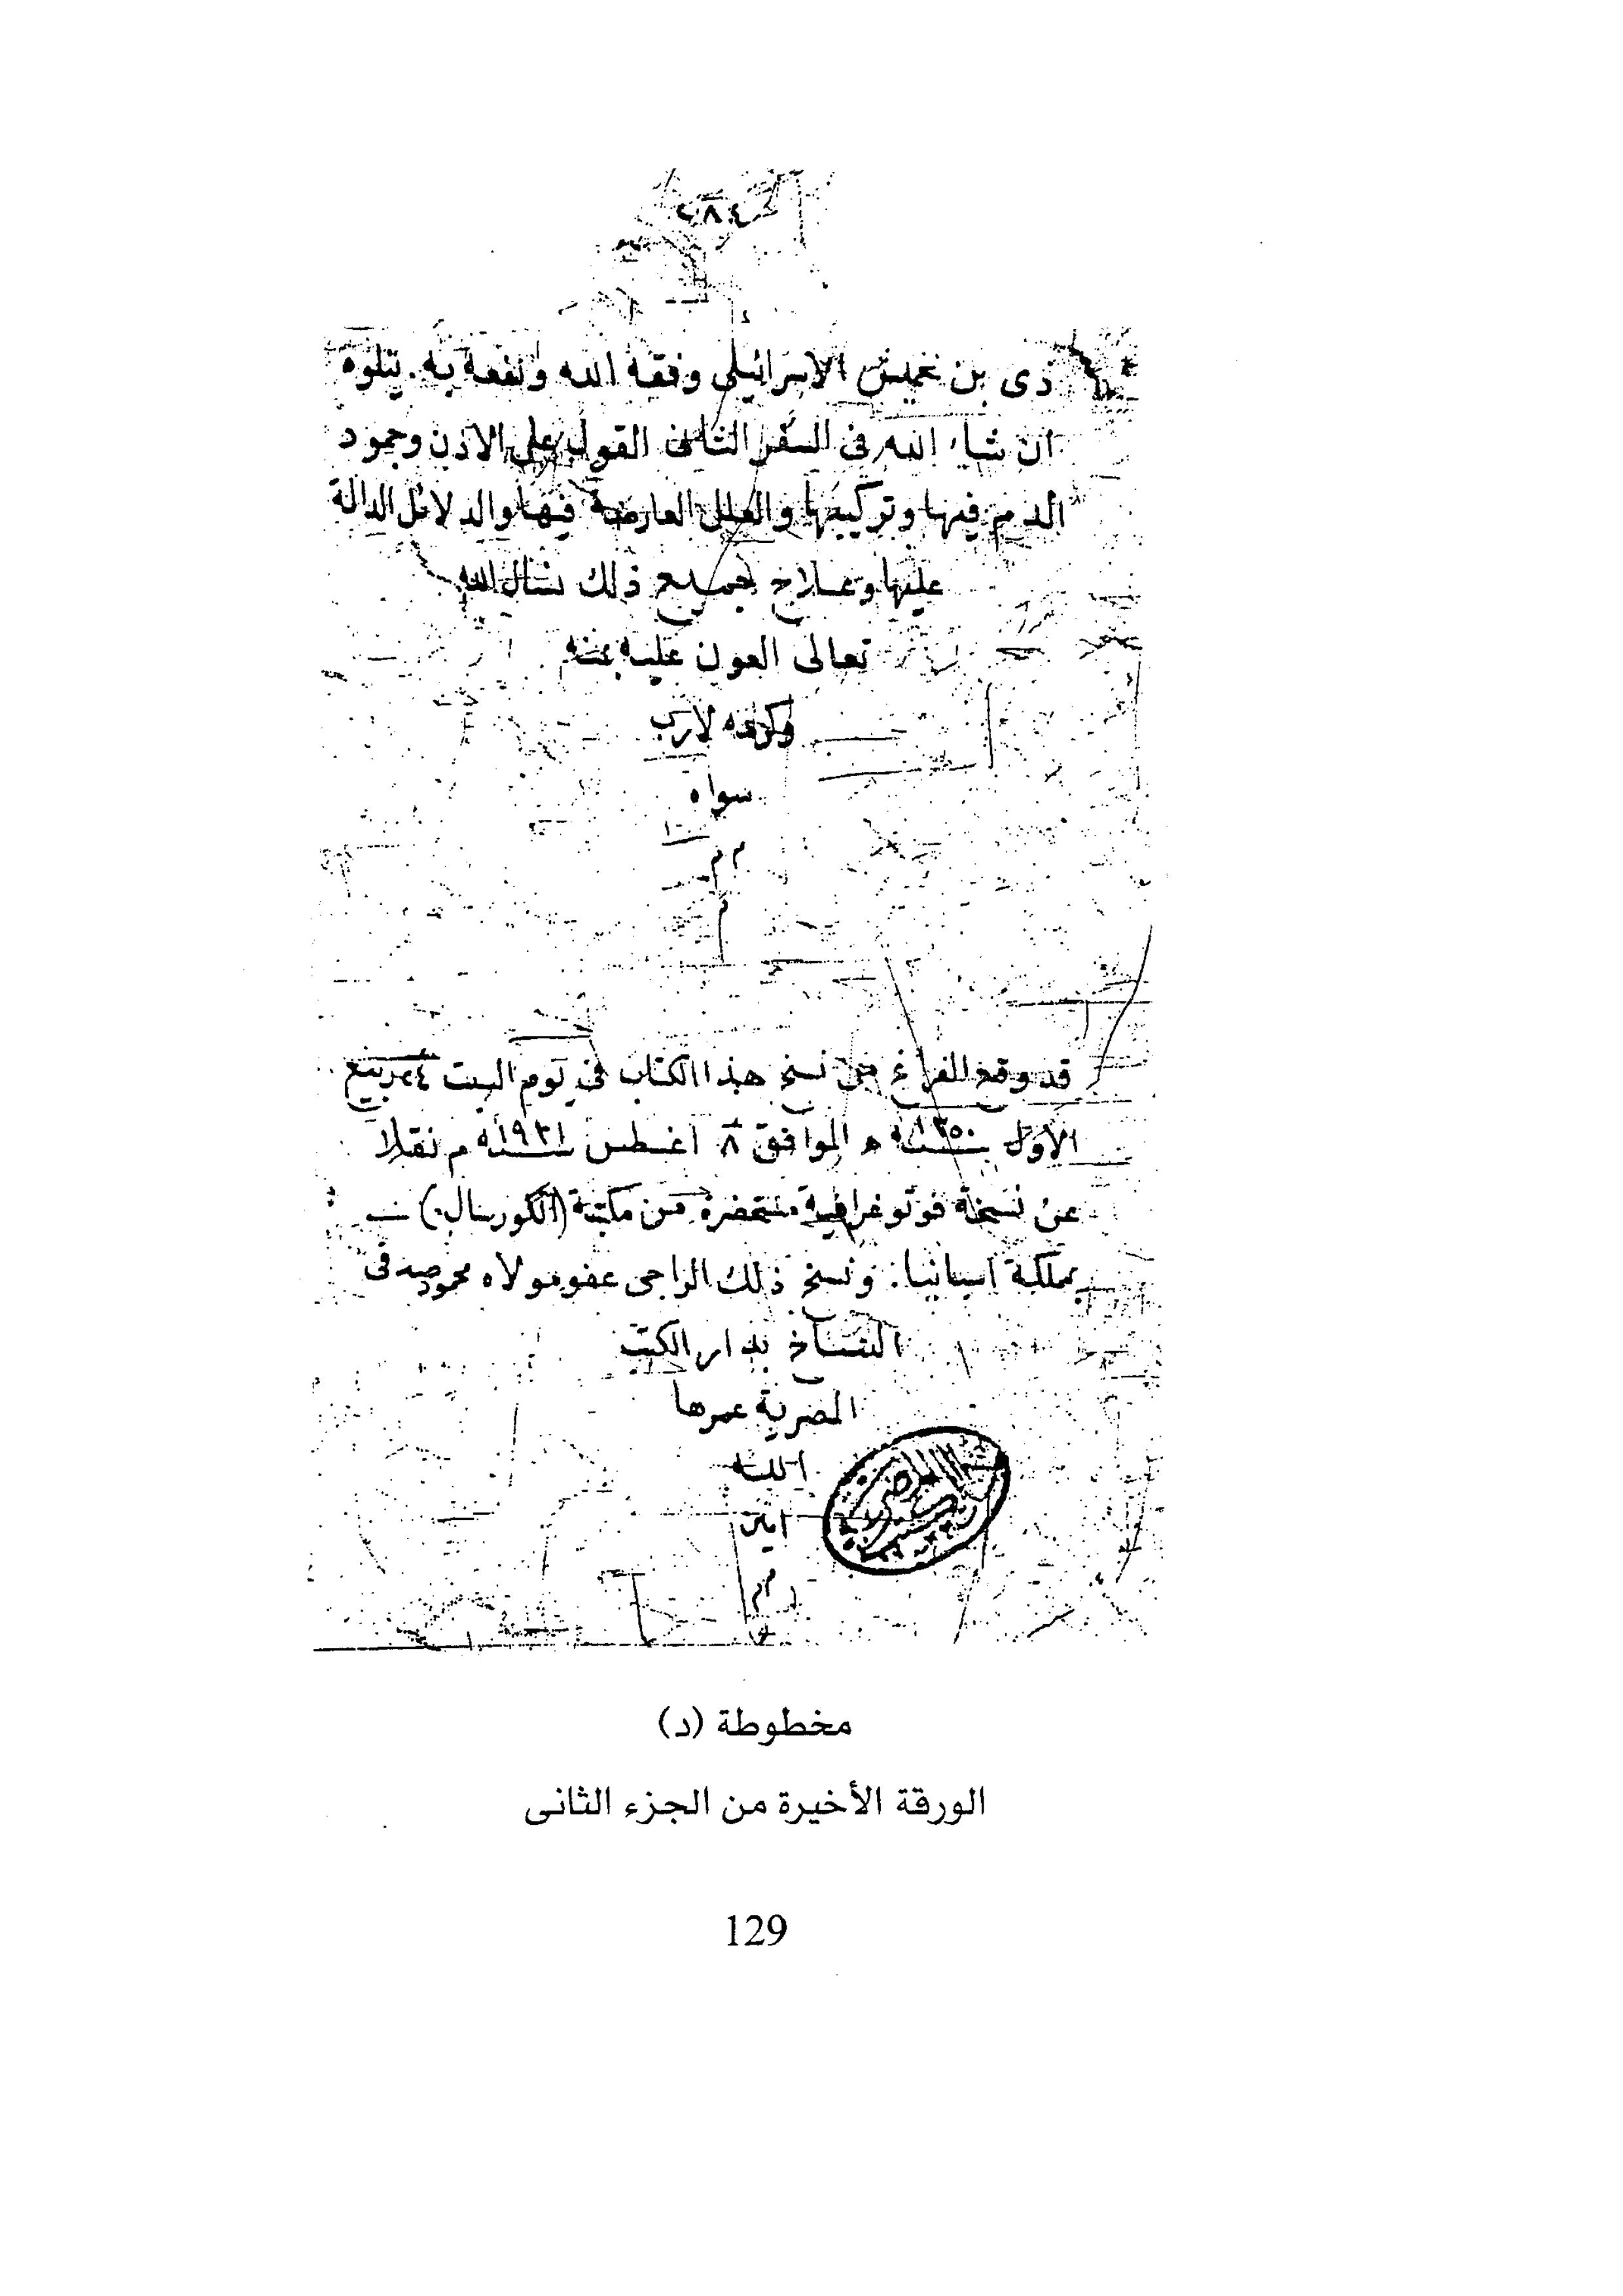 ٢٨٤
ذى بن نحميش الاسرائيلى وفقه الله ونفعه به. يتلوه
ان شاء الله فى السفر الثانى القول على الاذن وجمود
الدم فيها وتركيبها والعلل العارضة فيها والدلائل الدالة
عليها وعلاج جميع ذلك نسأل الله
تعالى العون عليه بمنه
وكرمه لارب
سواه
م م
م
قد وقع الفراغ من نسخ هذا الكتاب فى يوم السبت ٢٤ ربيع
الاول سنة ١٣٥٠ ه الموافق ٨ اغسطس سنة ١٩٣١ م نقلا
عن نسخة فوتوغرافية مستحضرة من مكتبة (الكوريال)
بمملكة اسبانيا: ونسخ ذلك الراجى عفو مولاه محمود صدقى
النساخ بدار الكتب
المصرية عمرها
الله
امين
م م
مخطوطة (د)
الورقة الأخيرة من الجزء الثانى
129